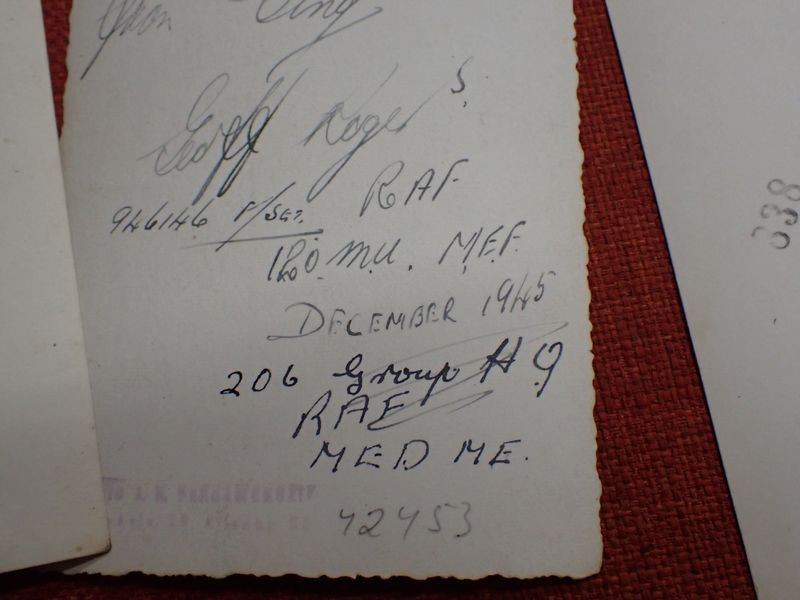 Geoff Rogers
946146 F/SGT. RAF
120 M.U. M.E.F.
DECEMBER 1945
206 Group HQ
RAF
MED ME.
42453
338